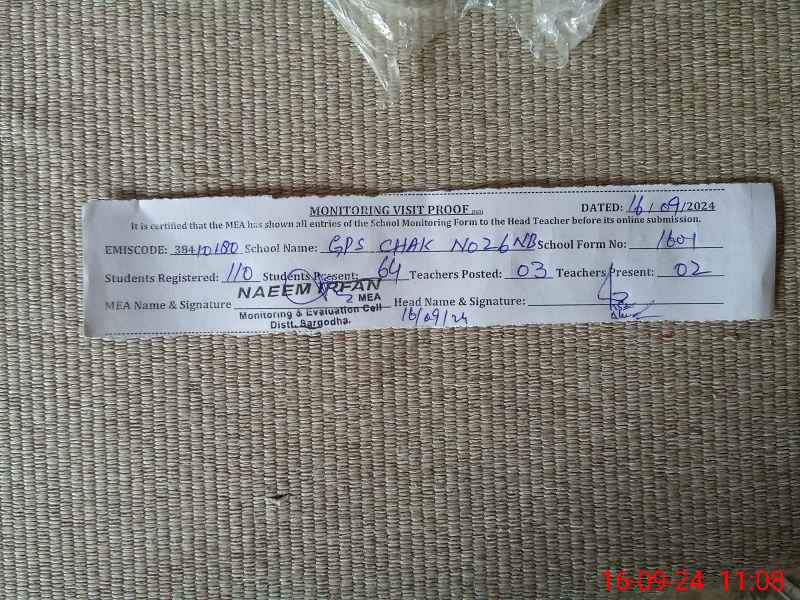 MONITORING VISIT PROOF DATED: 16/09/2024
It is certified that the MEA has shown all entries of the School Monitoring Form to the Head Teacher before its online submission.
EMISCODE: 38410180 School Name: GPS CHAK NO 26 NB School Form No: 1601
Students Registered: 110 Students Present: 64 Teachers Posted: 03 Teachers Present: 02
MEA Name & Signature NAEEM IRFAN Head Name & Signature:
MEA
Monitoring & Evaluation Cell
Distt. Sargodha.
16/09/24
16-09-24 11:08